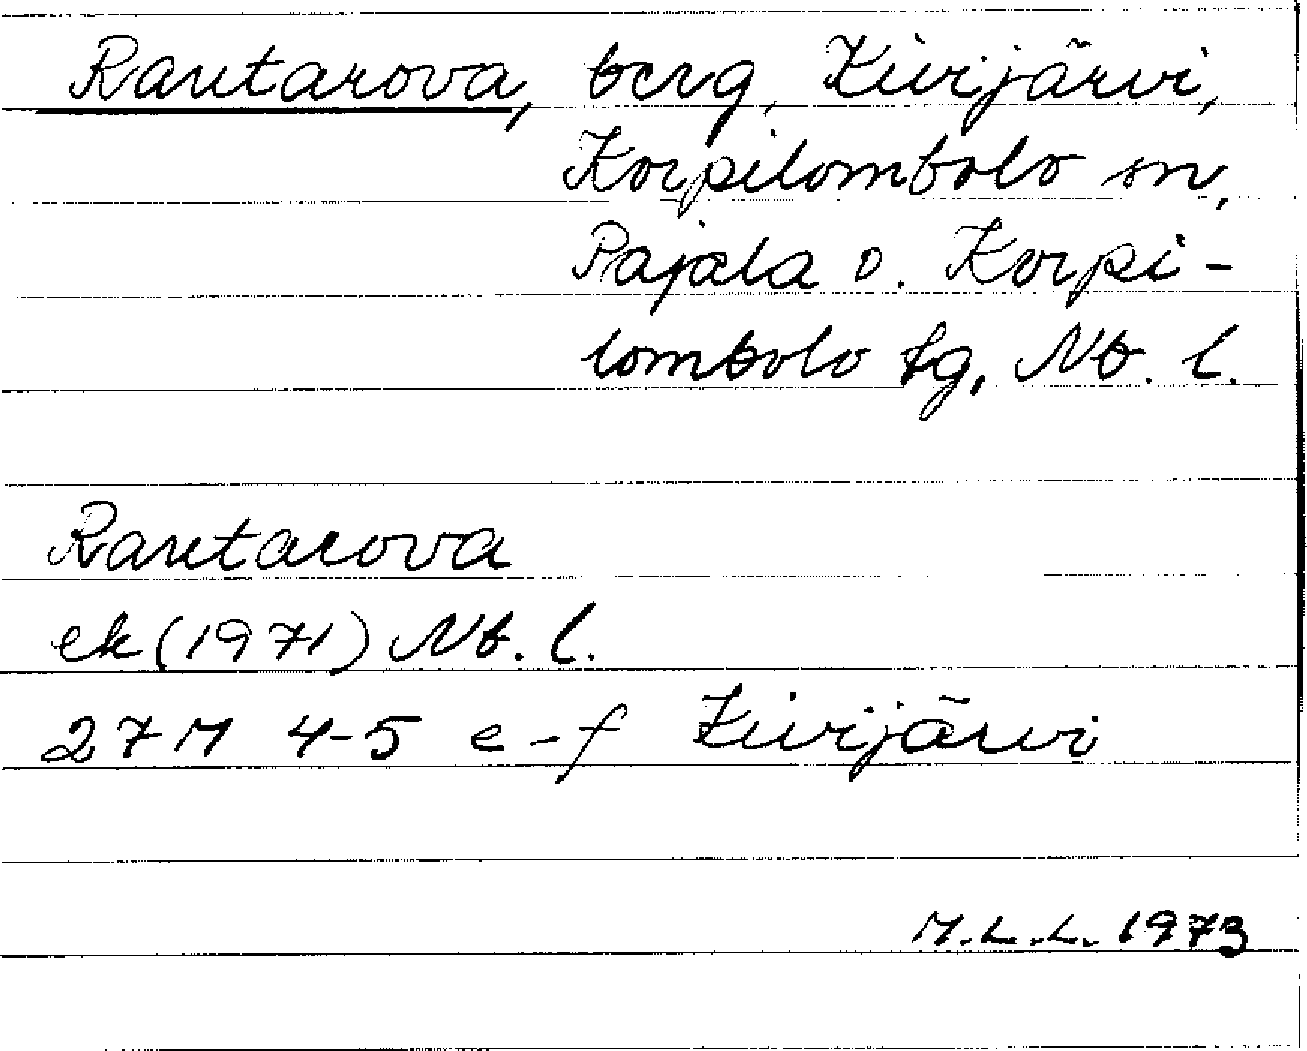 Rautarova, berg, Kivijärvi,
Korpilombolo sn,
Pajala o. Korpi-
lombolo tg, Nb. l.
Rautarova
ek (1971) Nb. l.
27M 4-5 e-f Kivijärvi
M.L.L. 1973